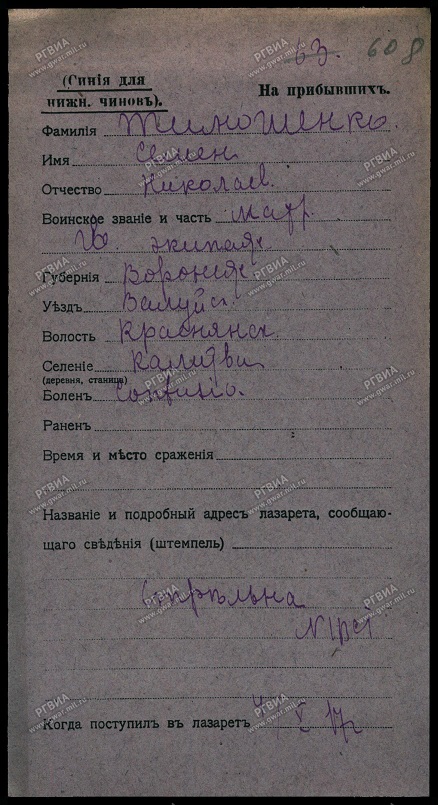 63. 608
(Синія для
нижн. чиновъ).
На прибывшихъ.
Фамилія Тимошенко.
Имя Семен
Отчество Николаев.
Воинское званіе и часть матр.
Гв. экипаж.
Губернія Воронеж.
Уѣздъ Валуйск.
Волость Краснянск.
Селеніе
(деревня, станица)
Боленъ Contusio.
Раненъ
Время и мѣсто сраженія
Названіе и подробный адресъ лазарета, сообщаю-
щаго свѣдѣнія (штемпель)
Стрѣльна
Когда поступилъ въ лазаретъ V 17
РГВИА
www.gwar.mil.ru